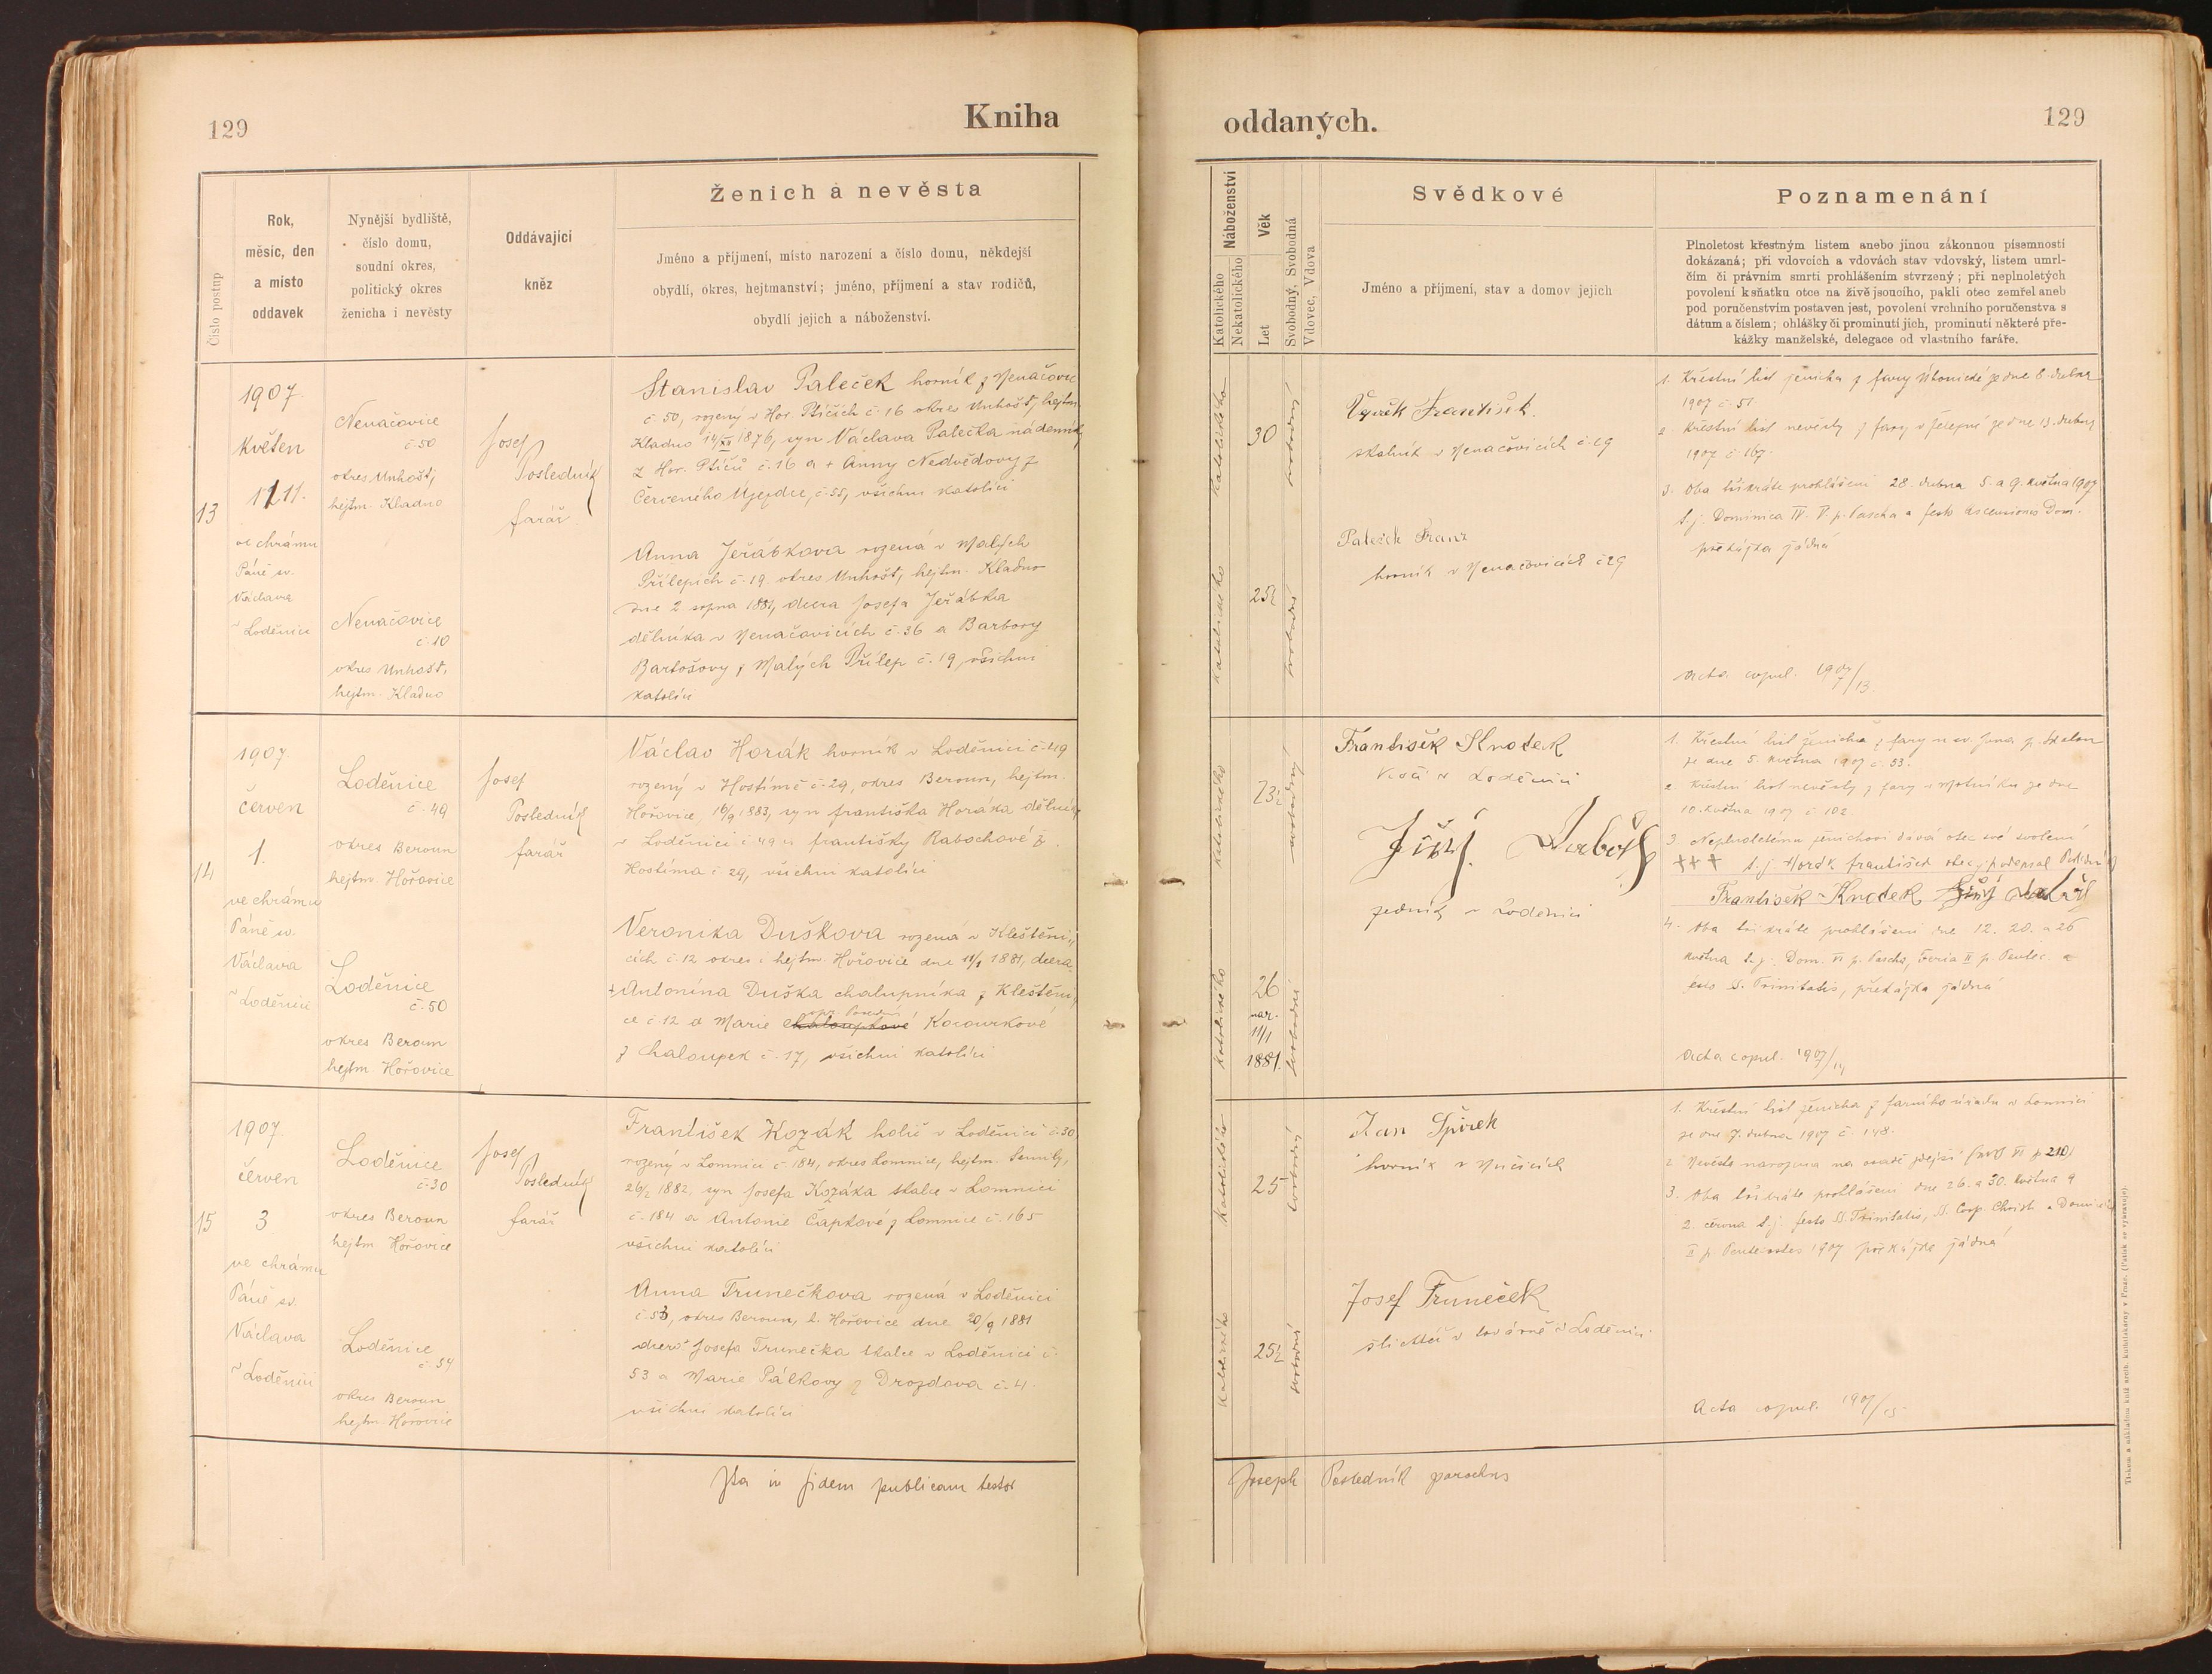 129
Kniha
Číslo postup
Rok,
měsíc, den
a místo
oddavek
Nynější bydliště,
číslo domu,
soudní okres,
politický okres
ženicha i nevěsty
Oddávající
kněz
Ženich a nevěsta
Jméno a příjmení, místo narození a číslo domu, někdejší
obydlí, okres, hejtmanství; jméno, příjmení a stav rodičů,
obydlí jejich a náboženství.
13
1907
Květen
11.
ve chrámu
Páně sv.
Václava
v Loděnici
Nenačovice
č. 50
okres Unhošť,
hejtm. Kladno
Nenačovice
č. 10
okres Unhošť,
hejtm. Kladno
Josef
Posledník
farář
Stanislav Paleček horník z Nenačovic
č. 50, rozený v Hor. Ptičích č. 16 okres Unhošť, hejtm.
Kladno 14/XII 1876, syn Václava Palečka nádeníka
z Hor. Ptičů č. 16 a + Anny Nedvědovy z
Červeného Újezdce, č. 55, všichni katolíci
Anna Jeřábkova rozená v Malých
Přílepích č. 19. okres Unhošť, hejtm. Kladno
dne 2 srpna 1881, dcera Josefa Jeřábka
dělníka v Nenačovicích č. 36 a Barbory
Bartošovy z Malých Přílep č. 19, všichni
katolíci
14
1907
červen
1.
ve chrámu
Páně sv.
Václava
v Loděnici
Loděnice
č. 49
okres Beroun
hejtm. Hořovice
Loděnice
č. 50
okres Beroun
hejtm. Hořovice
Josef
Posledník
farář
Václav Horák horník v Loděnici č. 49
rozený v Hostímě č. 29, okres Beroun, hejtm.
Hořovice, 16/9 1883, syn františka Horáka dělníka
v Loděnici č 49 a františky Rabochové z
Hostíma č. 29, všichni katolíci
Veronika Duškova rozena v Kleštěni„
cích č. 12 okres i hejtm. Hořovice dne 11/1 1881, dcera
+ Antonína Duška chalupníka z Kleštěni„
ce č. 12 a Marie Kocourkové
z Chaloupek č. 17, všichni katolíci
15
1907
červen
3
ve chrámu
Páně sv.
Václava
v Loděnici
Loděnice
č. 30
okres Beroun
hejtm. Hořovice
Loděnice
č. 54
okres Beroun
hejtm. Hořovice
Josef
Posledník
farář
František Kozák holič v Loděnici č. 30,
rozený v Lomnici č. 184, okres Lomnice, hejtm. Semily,
26/2 1882, syn Josefa Kozáka tkalce v Lomnici
č. 184 a Antonie Čapkové z Lomnice č. 165
všichni katolíci
Anna Trunečkova rozená v Loděnici
č. 53, okres Beroun, h. Hořovice dne 20/9 1881
dcera Josefa Trunečka tkalce v Loděnici č.
53 a Marie Pálkovy z Drozdova č. 4.
všichni katolíci
Ita in fidem publicam testor
oddaných.
129
Náboženství
Katolického
Nekatolického
Věk
Let
Svobodný, Svobodná
Vdovec, Vdova
Svědkové
Jméno a příjmení, stav a domov jejich
Poznamenání
Plnoletost křestným listem anebo jinou zákonnou písemností
dokázaná; při vdovcích a vdovách stav vdovský, listem umrl-
čím či právním smrti prohlášením stvrzený; při neplnoletých
povolení k sňatku otce na živě jsoucího, pakli otec zemřel aneb
pod poručenstvím postaven jest, povolení vrchního poručenstva s
dátum a číslem; ohlášky či prominutí jich, prominutí některé pře-
kážky manželské, delegace od vlastního faráře.
katolického
30
svobodný
František.
skalník v Nenačovicích č. 29
katolického
25½
svobodná
Paleček Franz
horník v Nenačovicích č 29
1. Křestní list ženicha z fary Úhonické ze dne 8. dubna
1907 č. 51
2. Křestní list nevěsty z fary v Železné ze dne 13. dubna
1907 č. 167.
3. Oba třikráte prohlášeni 28. dubna 5. a 9. května 1907
t. j. Dominica IV. V. p. Pascha a festo Ascensionis Dom.
překážka žádná
Acta copul. 1907/13.
katolického
23½
svobodný
František Knotek
v Loděnici
Jiří
zedník v Loděnici
katolického
26
nar.
11/1
1881.
svobodná
1. Křestní list ženicha z fary u sv. Jana p. Skalou
ze dne 5. května 1907 č. 53.
2. Křestní list nevěsty z fary v ze dne
10. května 1907 č. 102
3. Neplnoletému ženichovi dává otec své svolení
+++ t. j. Horák františek otec, podepsal Posledník
František Knotek Jiří
4. Oba třikráte prohlášeni dne 12. 20. a 26
května t. j. Dom. VI p. Pascha, Feria II p. Pentec. a
festo S. Trinitatis, překážka žádná
Acta copul. 1907/14
katolického
25
svobodný
Jan Špirek
horník v Nučicích
katolického
25½
svobodná
Josef Truneček
v továrně v Loděnici.
1. Křestní list ženicha z farního úřadu v Lomnici
ze dne 7. dubna 1907 č. 148.
2. Nevěsta narozena na osadě zdejší (nar. VI p 210)
3. Oba třikráte prohlášeni dne 26. a 30. května a
2. června t. j. festo SS. Trinitatis, SS. Corp. Christi a Dominica
II p Pentecostes 1907 překážka žádná
Acta copul. 1907/15
Joseph Posledník parochus